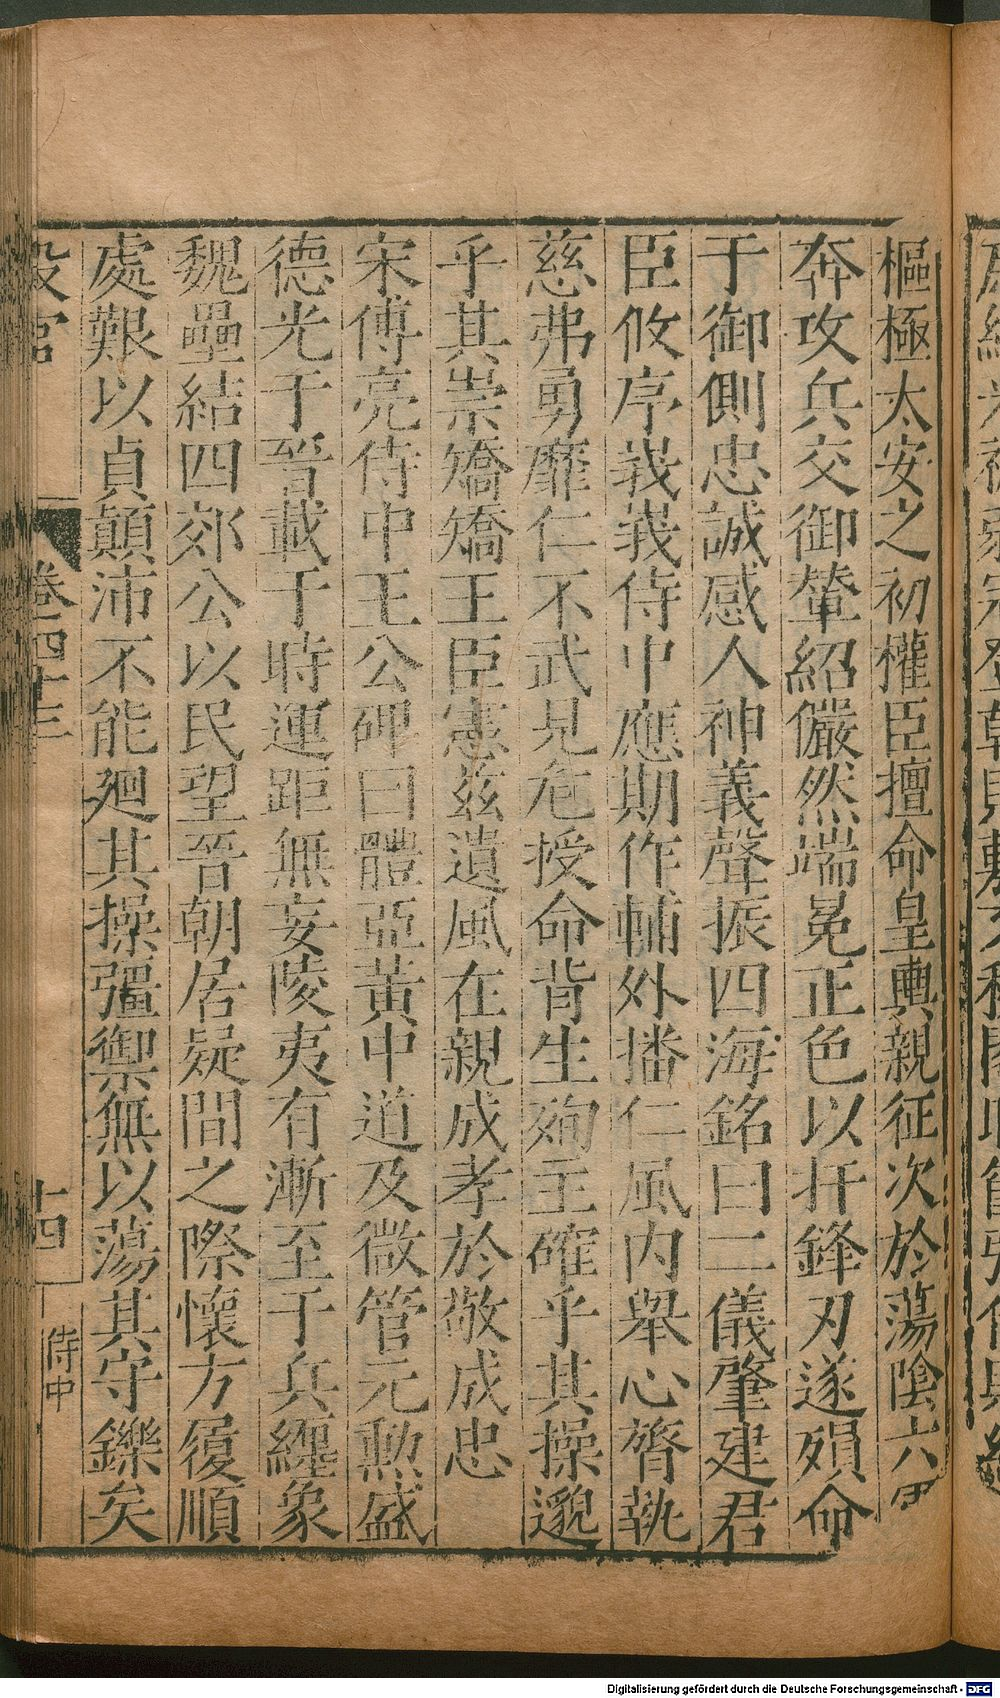 樞極太安之初權臣擅命皇輿親征次於蕩陰六軍
奔攻兵交御輦紹儼然端冕正色以扞鋒刃遂殞命
于御側忠誠感人神義聲振四海銘曰二儀肇建君
臣攸序峩峩侍中應期作輔外播仁風內舉心膂執
慈弗勇靡仁不武見危授命背生殉主確乎其操邈
乎其崇矯矯王臣憲茲遺風在親成孝於敬成忠
宋傅亮侍中王公碑曰體亞黃中道及微管元勲盛
德光于晉載于時運距無妄陵夷有漸至于兵纏象
魏壘結四郊公以民望晉朝居疑間之際懷方履順
處艱以貞顛沛不能廻其操彊禦無以蕩其守鑠矣
卷四十三
十四
侍中
Digitalisierung gefördert durch die Deutsche Forschungsgemeinschaft - DFG